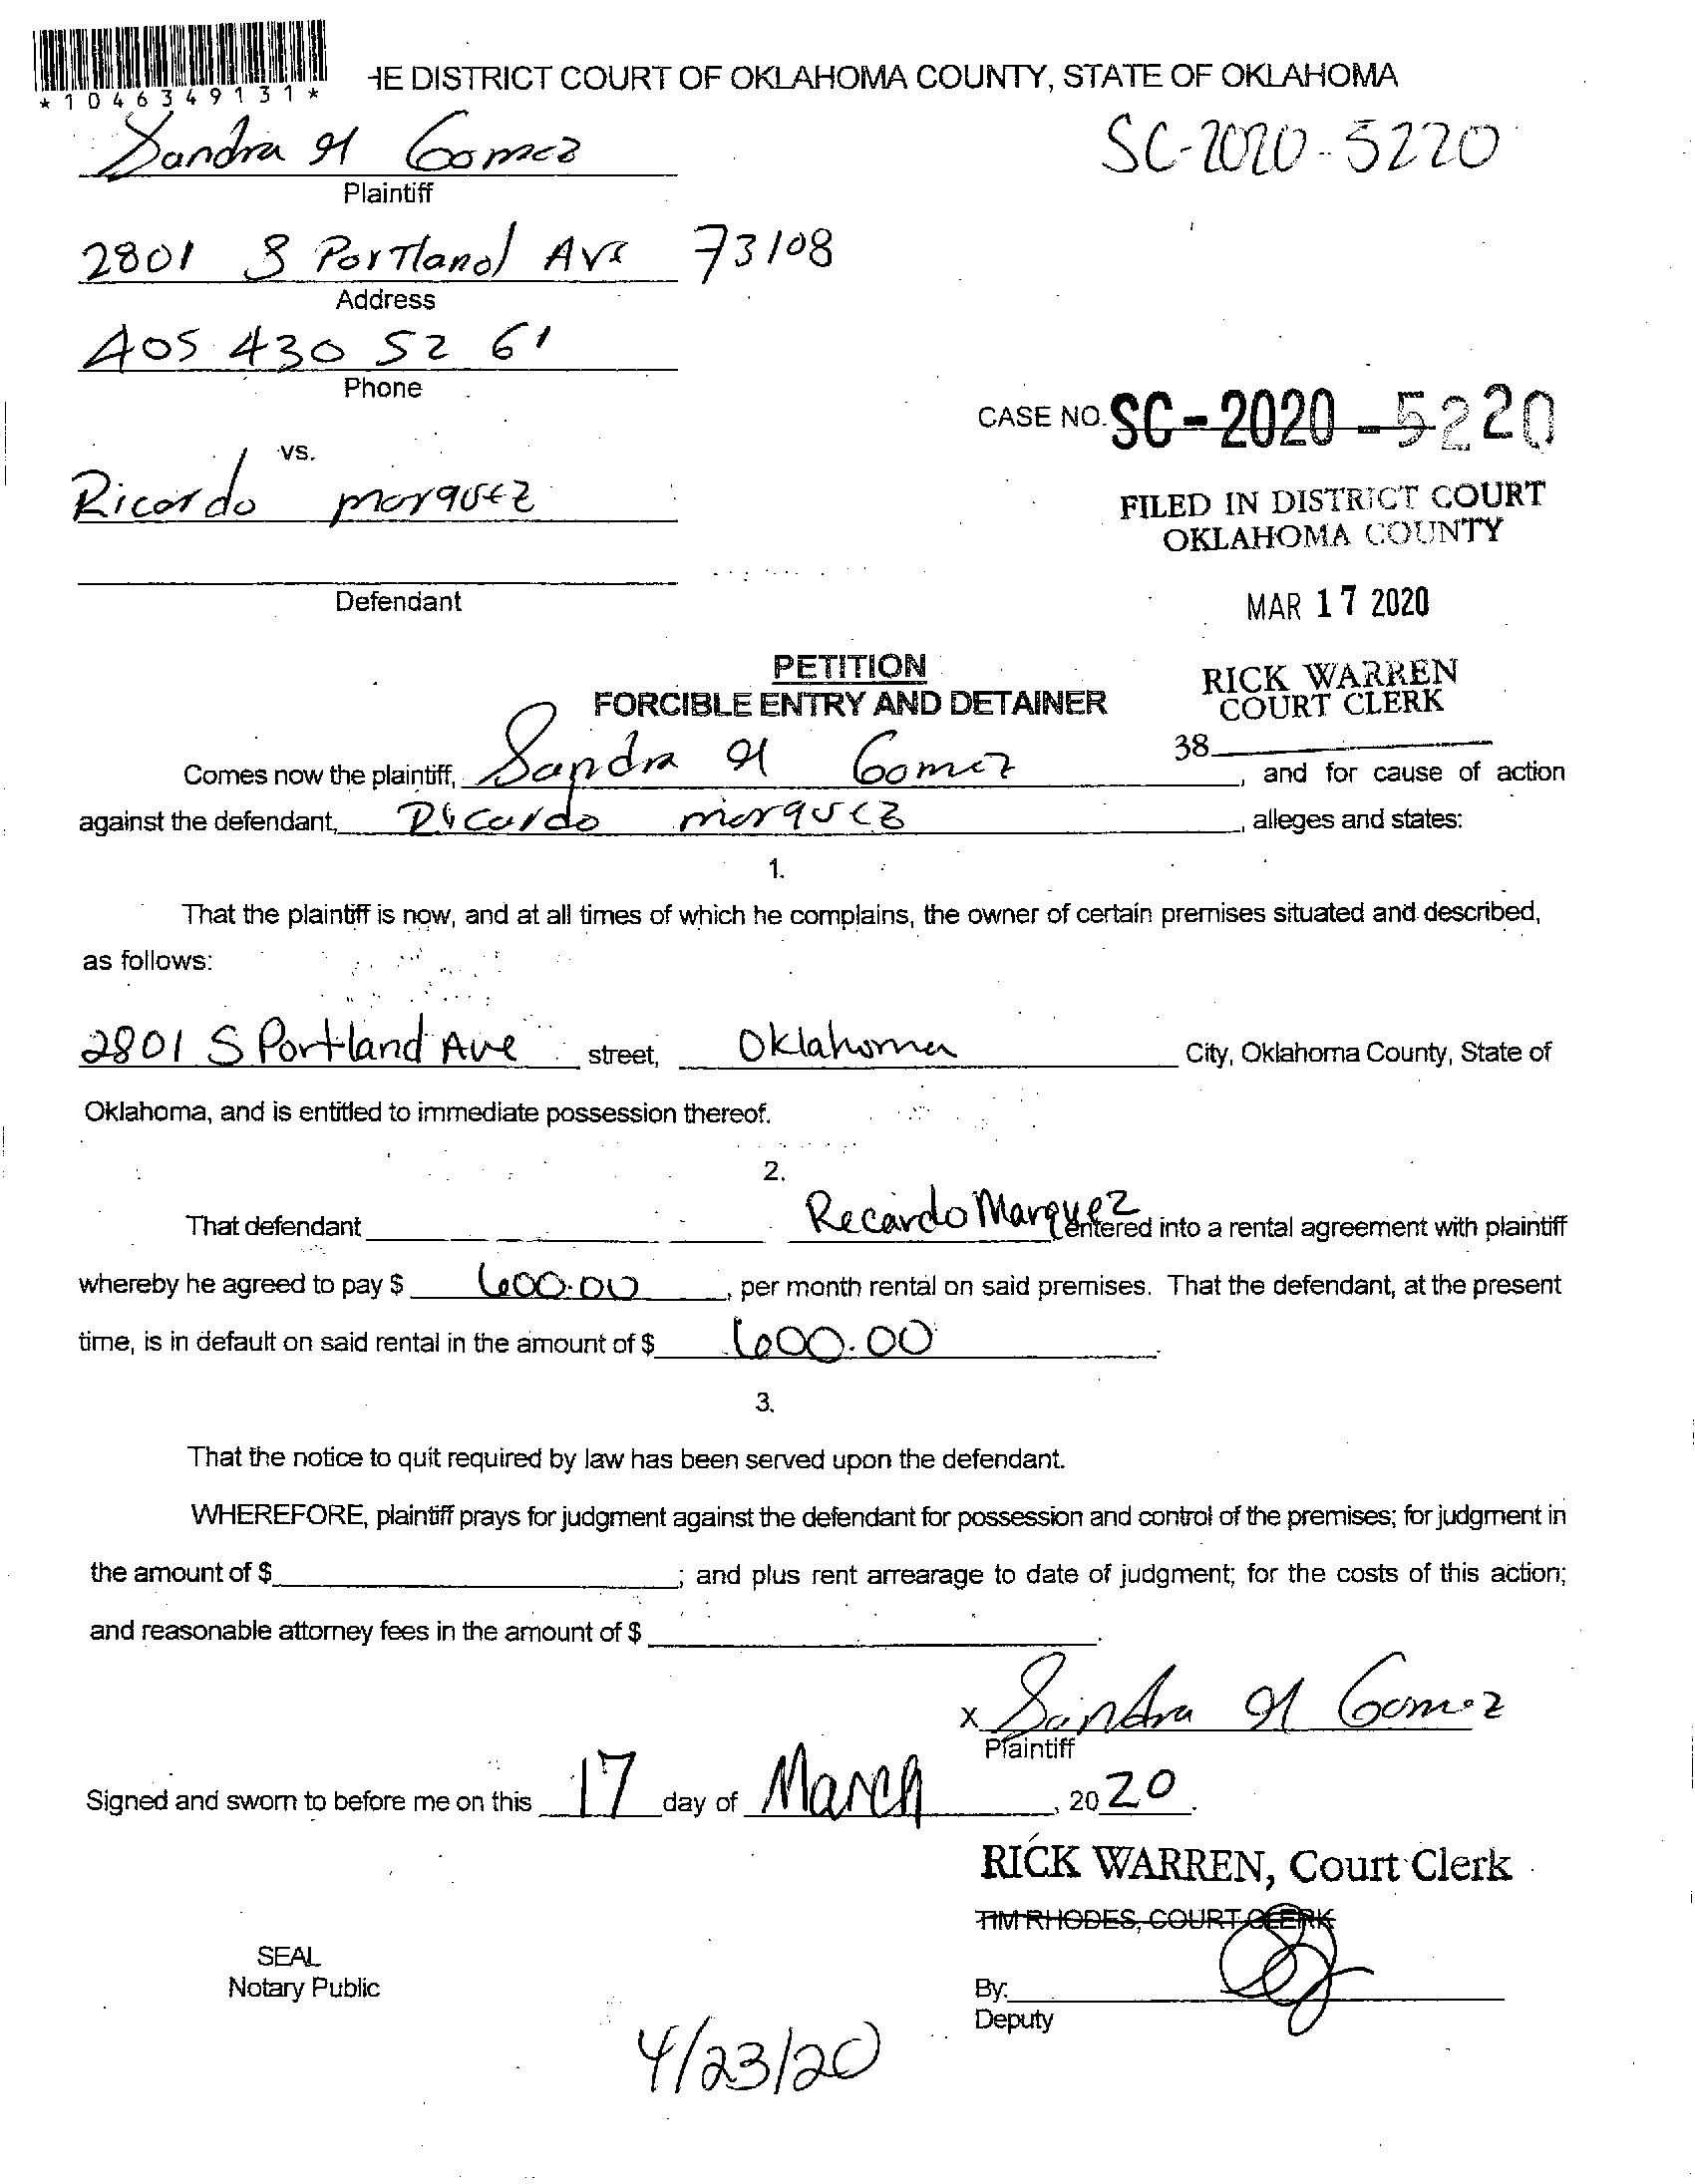 *1046349131*
HE DISTRICT COURT OF OKLAHOMA COUNTY, STATE OF OKLAHOMA
Sandra M Gomez
SC-2020-5220
Plaintiff
2801 S Portland Ave 73108
Address
405 430 52 61
Phone
CASE NO. SC-2020-5220
vs.
Ricardo marquez
FILED IN DISTRICT COURT
OKLAHOMA COUNTY
Defendant
MAR 17 2020
PETITION
FORCIBLE ENTRY AND DETAINER
RICK WARREN
COURT CLERK
38
Comes now the plaintiff, Sandra M Gomez, and for cause of action
against the defendant, Ricardo marquez, alleges and states:
1.
That the plaintiff is now, and at all times of which he complains, the owner of certain premises situated and described,
as follows:
2801 S Portland Ave street, Oklahoma City, Oklahoma County, State of
Oklahoma, and is entitled to immediate possession thereof.
2.
That defendant Recardo Marquez entered into a rental agreement with plaintiff
whereby he agreed to pay $ 600.00, per month rental on said premises. That the defendant, at the present
time, is in default on said rental in the amount of $ 600.00.
3.
That the notice to quit required by law has been served upon the defendant.
WHEREFORE, plaintiff prays for judgment against the defendant for possession and control of the premises; for judgment in
the amount of $ ; and plus rent arrearage to date of judgment; for the costs of this action;
and reasonable attorney fees in the amount of $ .
X Sandra M Gomez
Plaintiff
Signed and sworn to before me on this 17 day of March, 2020.
RICK WARREN, Court Clerk
TIM RHODES, COURT CLERK
SEAL
Notary Public
By:
Deputy
4/23/20